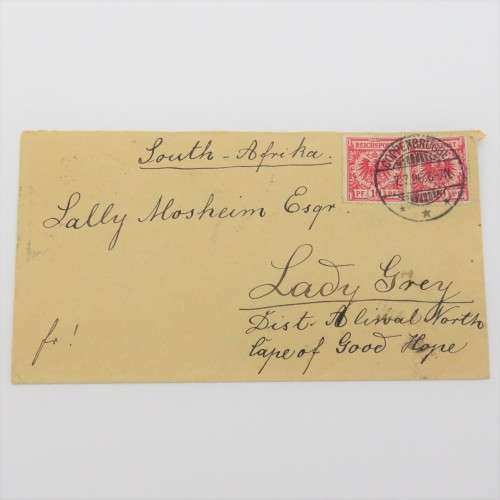 South-Afrika.
REICHSPOST
PF 10 PF
Sally Mosheim Esqr.
Lady Grey
Dist. Aliwal North
Cape of Good Hope
fr!